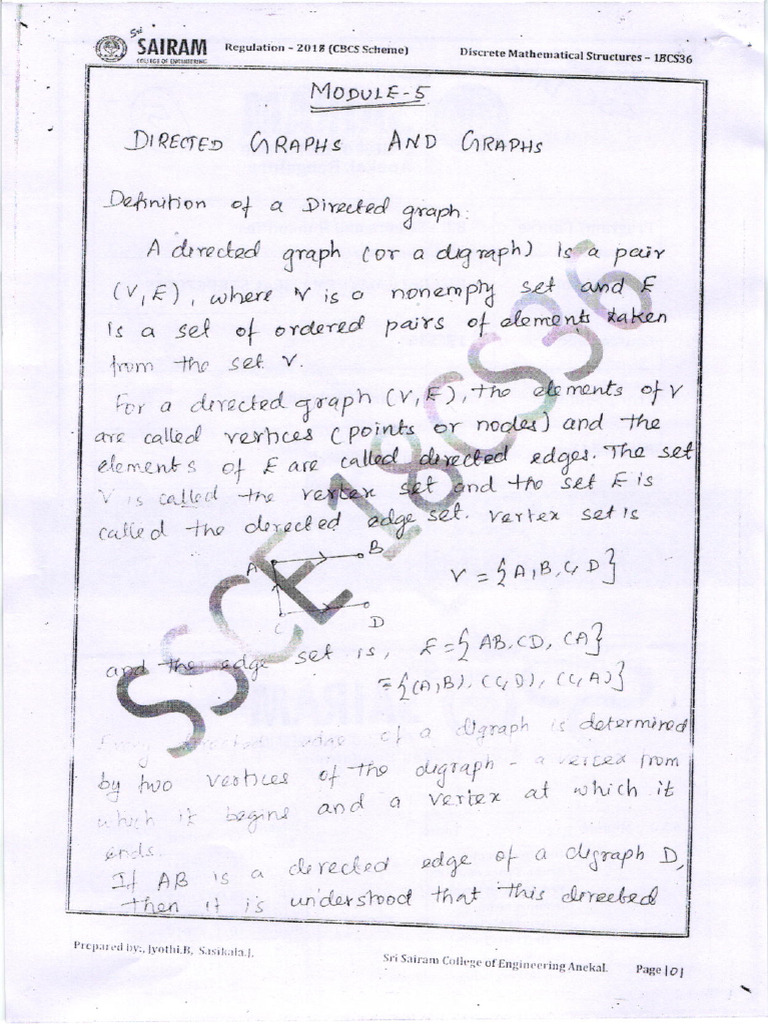 Sri
SAIRAM
COLLEGE OF ENGINEERING
Regulation – 2018 (CBCS Scheme)
Discrete Mathematical Structures – 18CS36
MODULE-5
DIRECTED GRAPHS AND GRAPHS
Definition of a Directed graph:
A directed graph (or a digraph) is a pair
(V,E), where V is a nonempty set and E
is a set of ordered pairs of elements taken
from the set V.
For a directed graph (V,E), the elements of V
are called vertices (points or nodes) and the
elements of E are called directed edges. The set
V is called the vertex set and the set E is
called the directed edge set. Vertex set is
A B
V = {A,B,C,D}
C D
and the edge set is, E={AB,CD, CA}
={(A,B), (C,D), (C,A)}
Every directed edge of a digraph is determined
by two vertices of the digraph - a vertex from
which it begins and a vertex at which it
ends.
If AB is a directed edge of a digraph D,
then it is understood that this directed
SSCE 18CS36
Prepared by:, Jyothi.B, Sasikala.J.
Sri Sairam College of Engineering Anekal.
Page |01